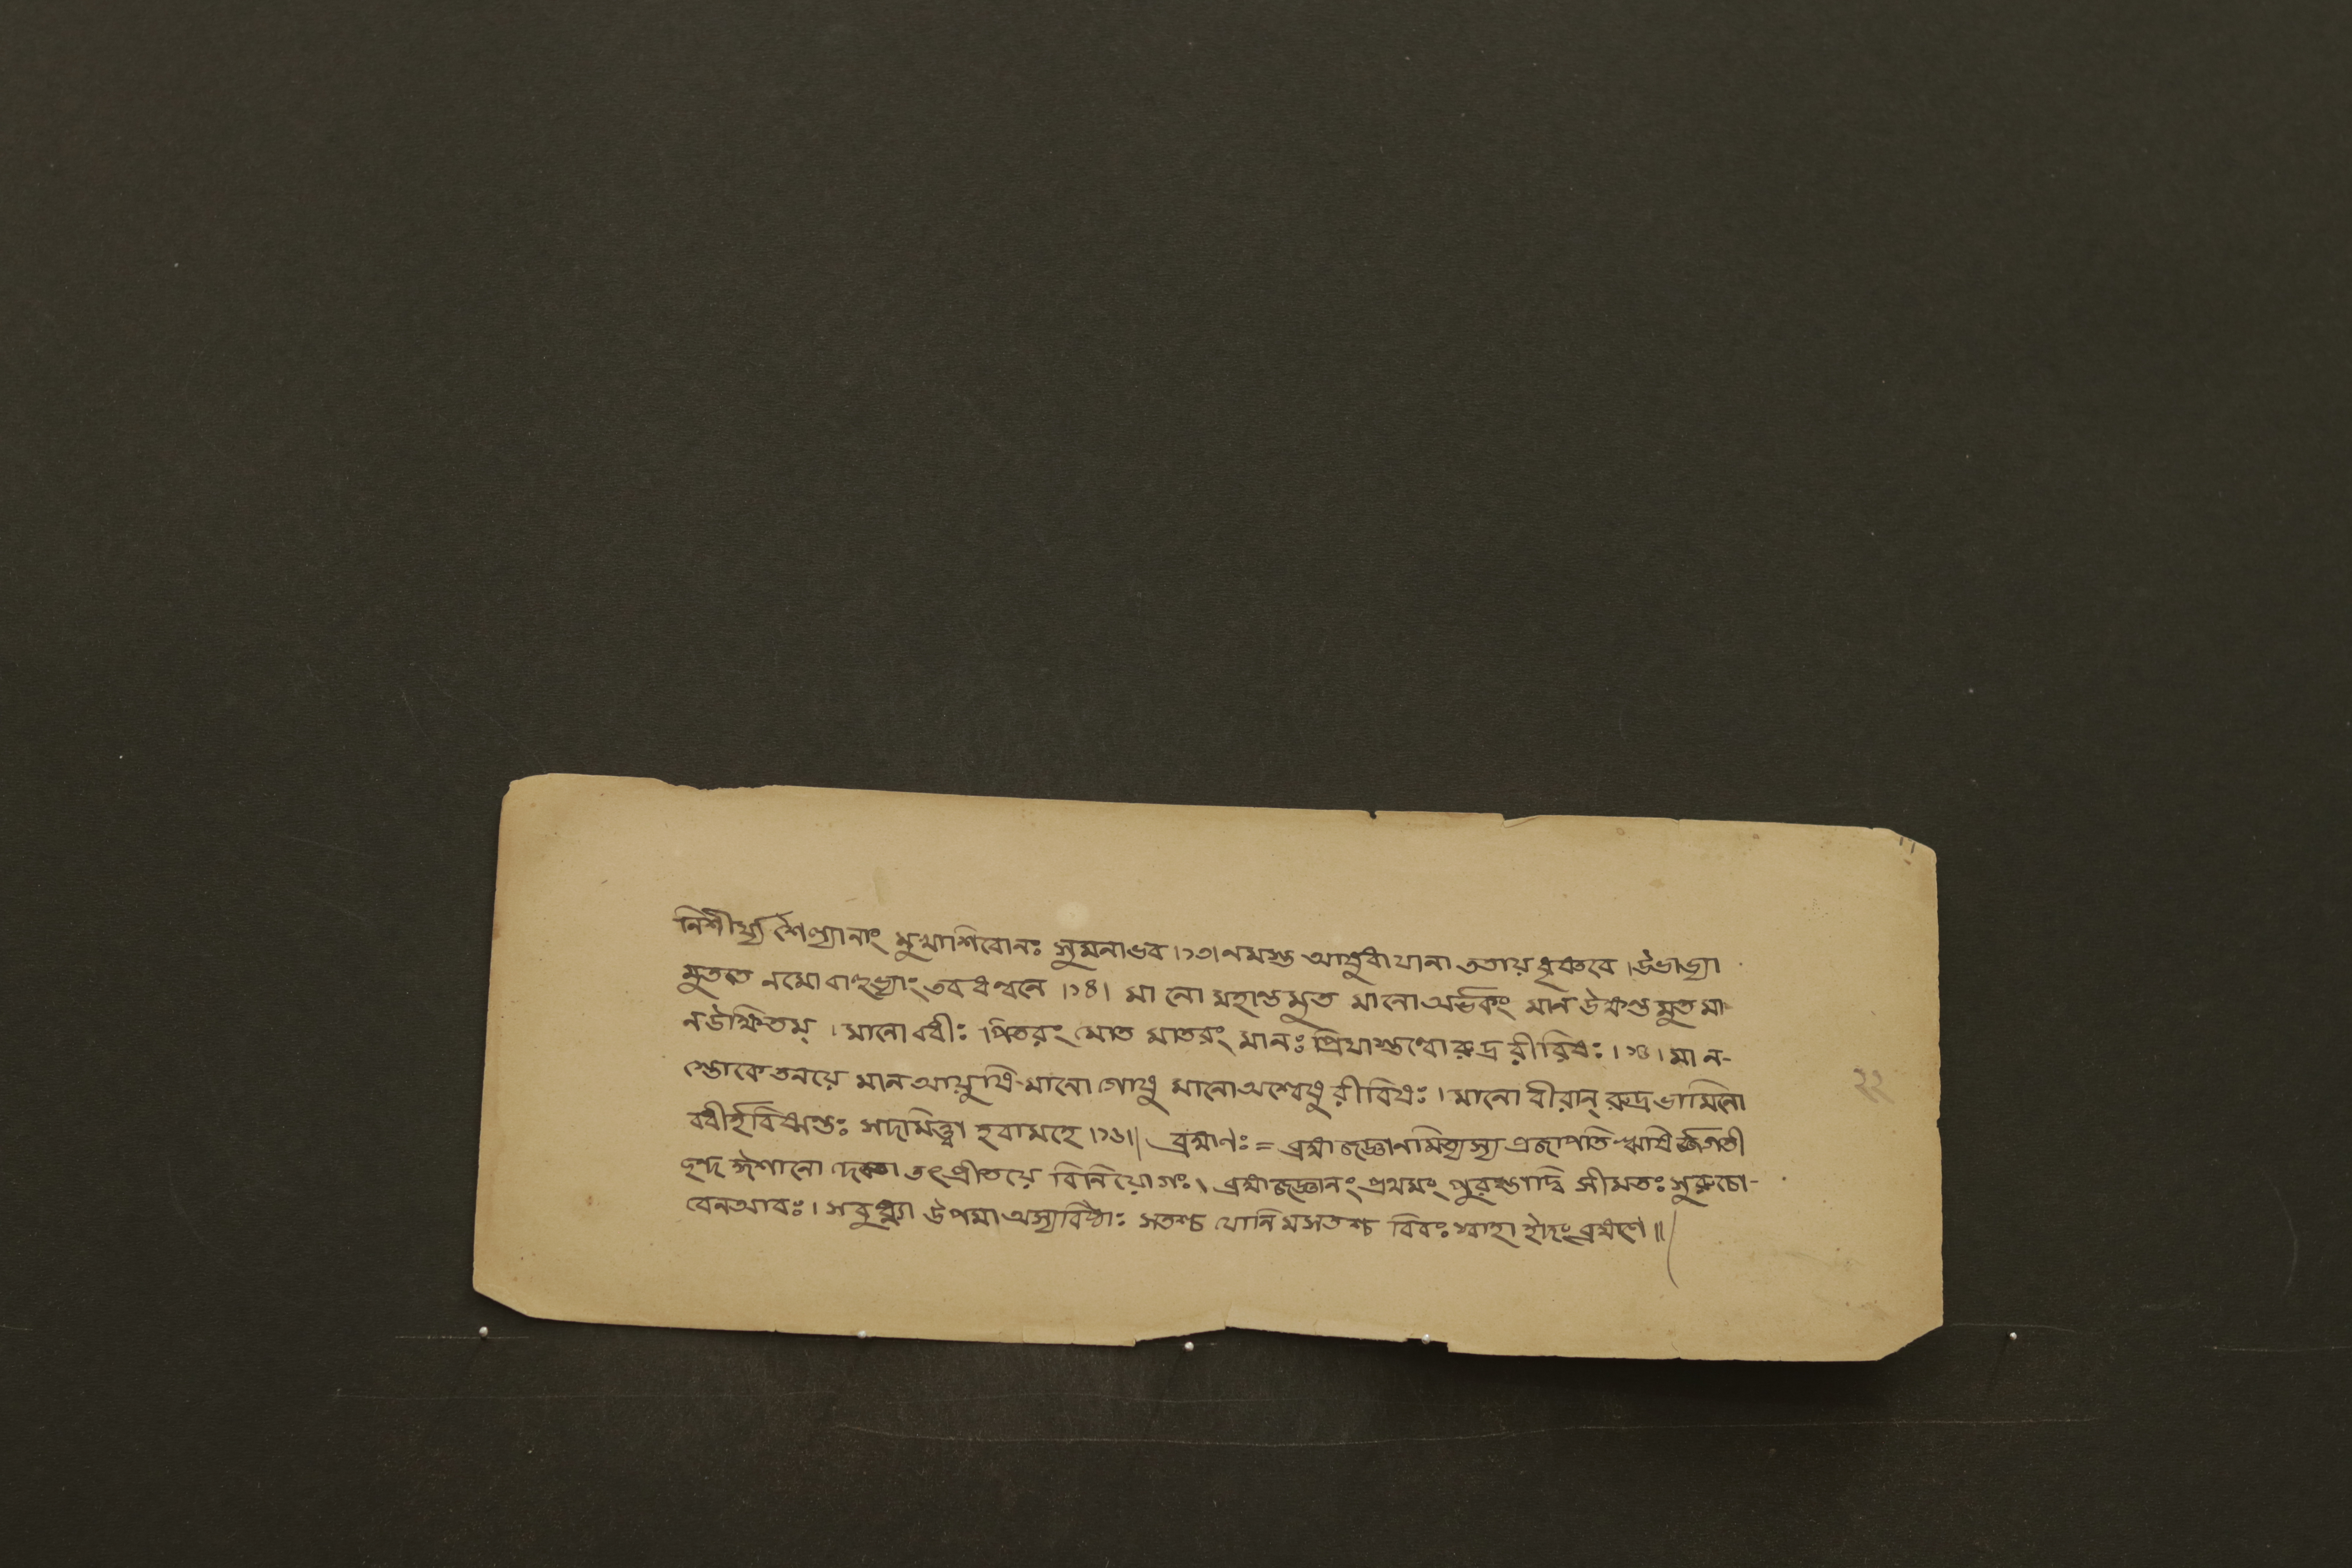 নিশীর্য্য শৈল্যানাং মুখাশিবোনঃ সুমনাভব ।১৩। নমস্ত আয়ুধাযানা ততায় ধৃষ্ণবে । উভাভ্যা
মুততে নমো বাহুভ্যাং তব ধন্বনে ।১৪। মা নো মহান্তমুত মানো অর্ভকং মান উক্ষন্তমুত মা
নউক্ষিতম্ । মানো বধীঃ পিতরং মোত মাতরং মানঃ প্রিয়াস্তন্বো রুদ্র রীরিষঃ ।১৫। মা ন-
স্তোকে তনয়ে মান আয়ুষি মানো গোষু মানো অশ্বেষু রীরিষঃ । মানো বীরান্ রুদ্র ভামিনো
বধীর্হবিষ্মন্তঃ সদমিত্ত্বা হবামহে ।১৬॥ ব্রহ্মণঃ = ব্রহ্মজজ্ঞানমিত্যস্য প্রজাপতি ঋষির্জগতী
ছন্দ ঈশানো দেবতা তৎপ্রীতয়ে বিনিয়োগঃ । ব্রহ্মজজ্ঞানং প্রথমং পুরস্তাদ্বি সীমতঃ সুরুচো-
বেনআবঃ । সবুধ্ন্যা উপমা অস্যবিষ্ঠাঃ সতশ্চ যোনিমসতশ্চ বিবঃ স্বাহা ইদং ব্রহ্মণে ॥
২২